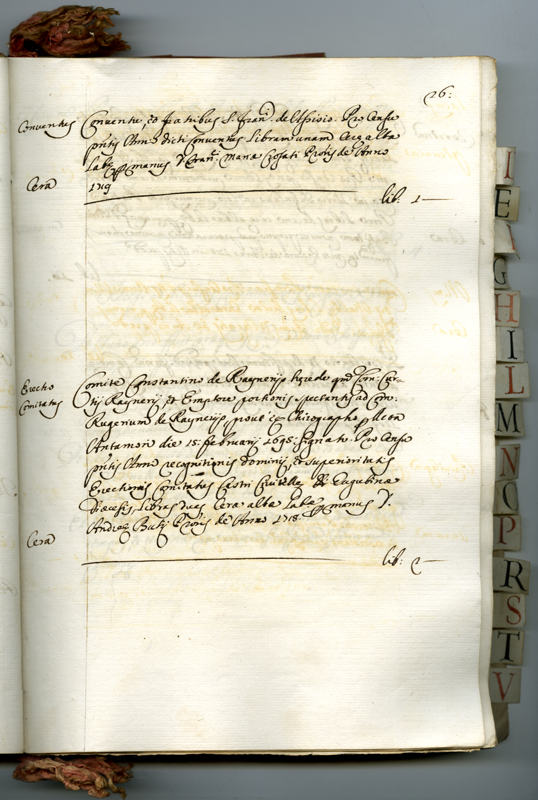 26:
Conventus Conventu, et fratibus S. Fran. de Ospicio. Pro Censu
ptis Anni dicti Conventus Libram unam Cere alba
manus D. Fran. Maria Prõris de Anno
Cera 1719
lib. 1—
Erectio Comite Constantino de Raynerijs herede qm Com. Cur-
Comitatus tij Raynerij, et Emptore portionis spectantis ad Com.
Rugerium de Raynerijs prout ex Chirographo
Antamori die 15. februarij 1695. signato. Pro Censu
ptis Anni recognitionis dominij, et superioritatis
Erectionis Comitatus Castri Civitelle Eugubinæ
diocesis Libras duas Cere alba manus D.
Cera Andreæ Prõris de Anno 1718.
lib: 2—
I
E
G
H
I
L
M
N
O
P
R
S
T
V